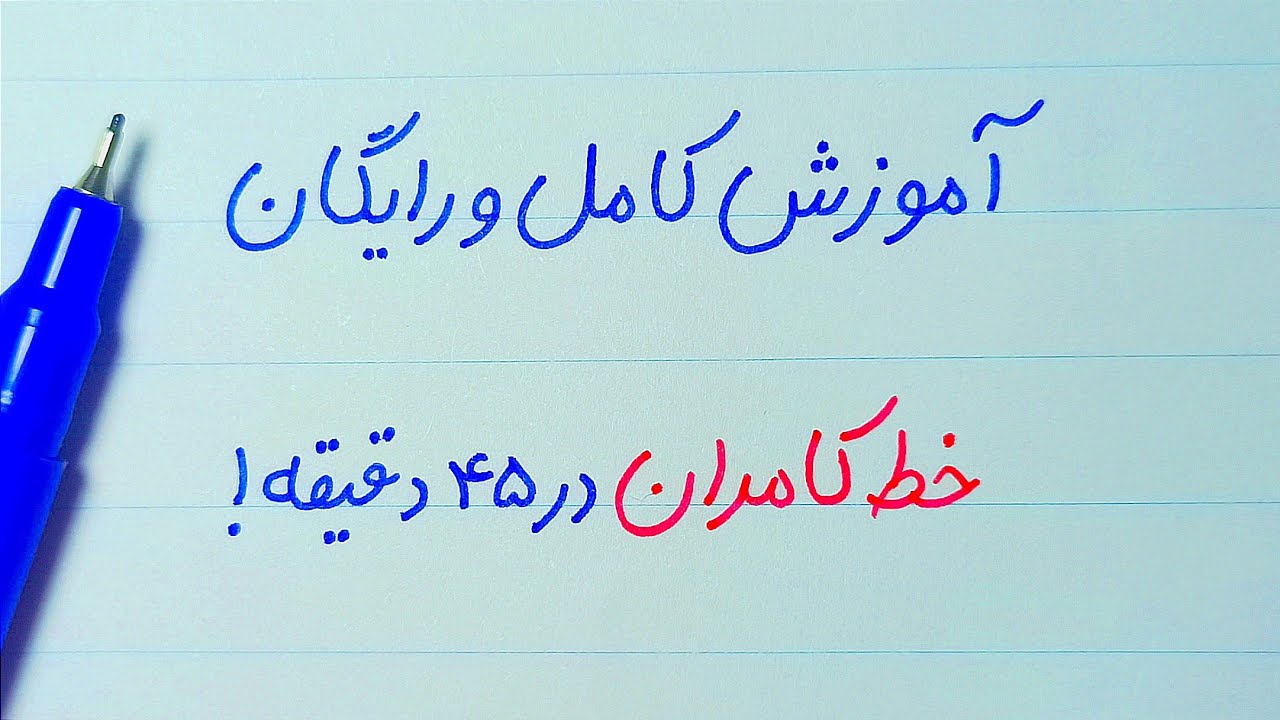 آموزش کامل و رایگان
خط کامران در ۴۵ دقیقه!